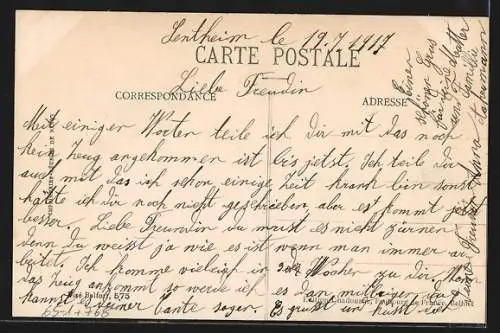 Sentheim le 19.7.1917
CARTE POSTALE
Liebe Freudin
CORRESPONDANCE
ADRESSE
Mit einiger Worten teile ich Dir mit das noch
kein Zeug angekommen ist bis jetzt. Ich teile Dir
auch mit das ich schon einige Zeit krank bin sonst
hätte ich Dir noch geschrieben, aber es kommt jetz
besser. Liebe Freundin du must es nicht zürnen
denn Du weisst ja wie es ist wenn man immer ar
beitet. Ich komme vieleich in Wochen zu Dir. Wen
das Zeug ankommt so werde ich es dan mitbringen
kannst es deiner Tante sagen. Es grüßt und küsst dich
Einen
schönen Gruss
für deine Mutter
und Familie
deine Freundin Maria
Belfort, 575